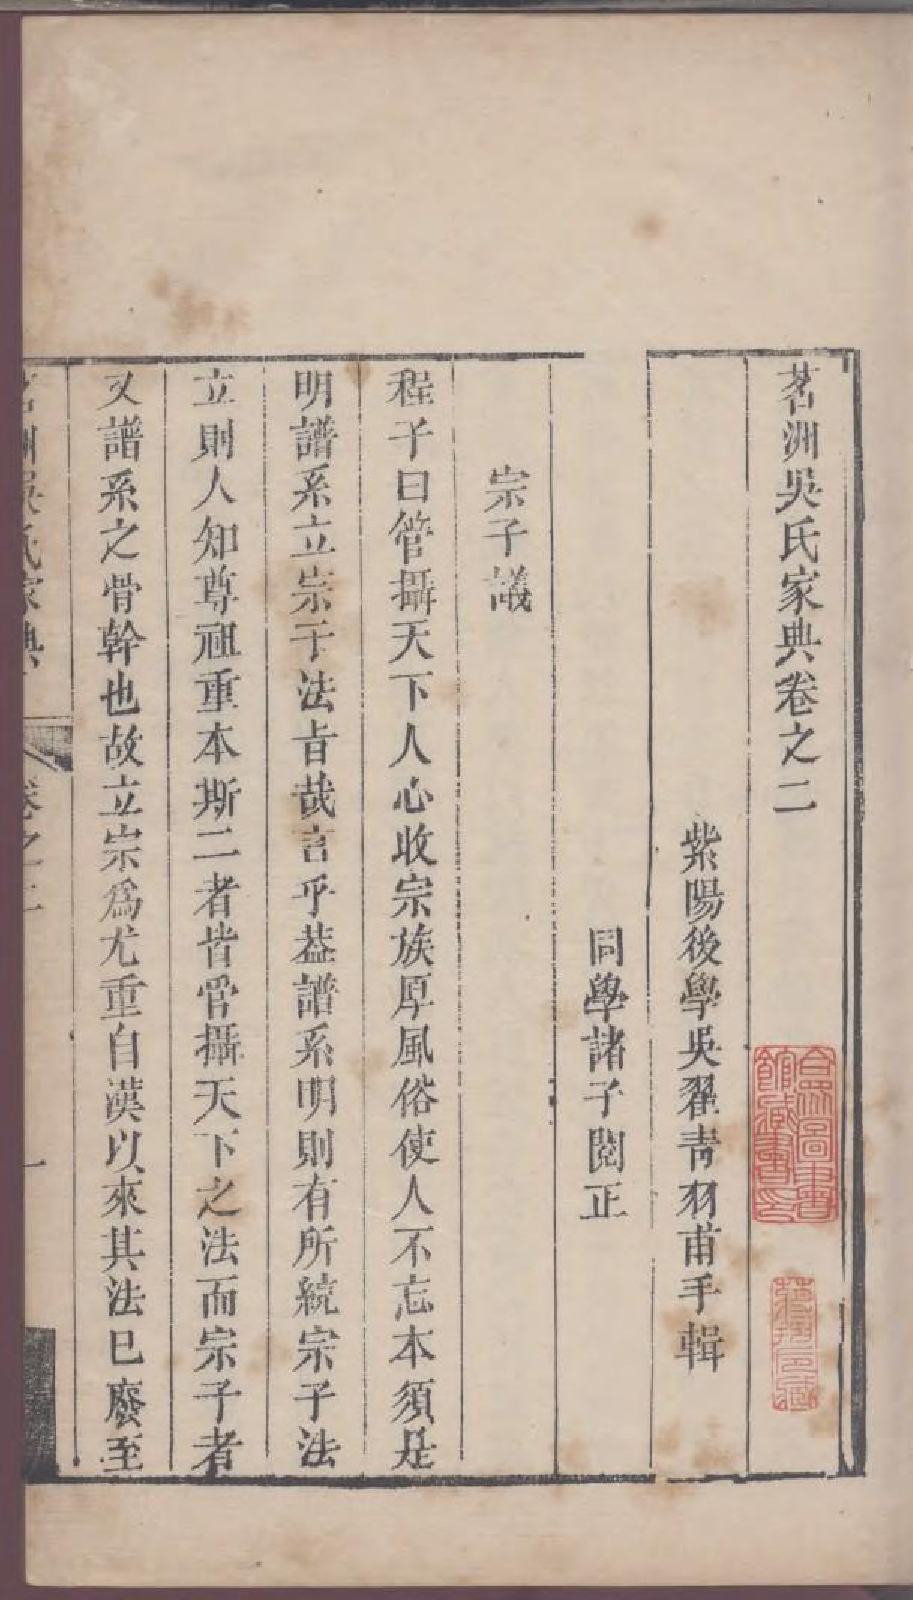 茗洲吳氏家典卷之二
紫陽後學吳翟青羽甫手輯
同學諸子閱正
宗子議
程子曰管攝天下人心收宗族厚風俗使人不忘本須是
明譜系立宗子法旨哉言乎葢譜系明則有所統宗子法
立則人知尊祖重本斯二者皆管攝天下之法而宗子者
又譜系之骨幹也故立宗爲尤重自漢以來其法已廢至
茗洲吳氏家典
卷之二
一